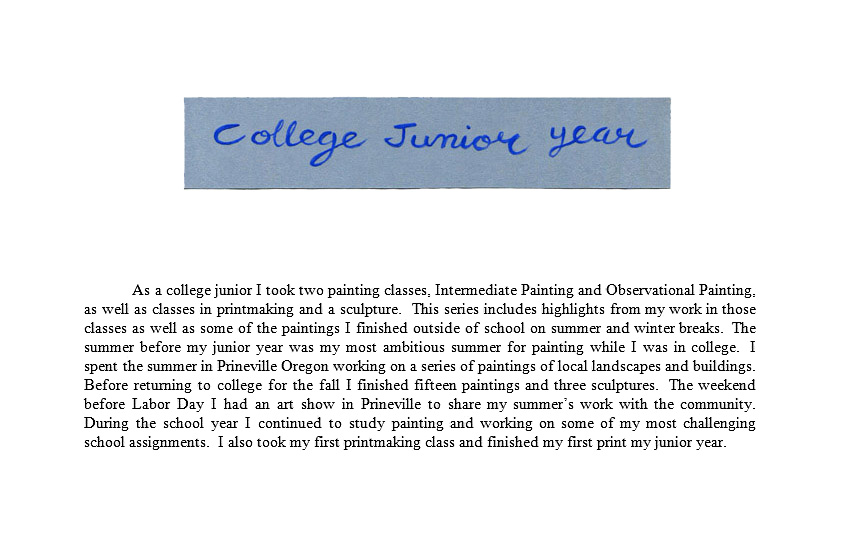 College Junior year
As a college junior I took two painting classes, Intermediate Painting and Observational Painting,
as well as classes in printmaking and a sculpture. This series includes highlights from my work in those
classes as well as some of the paintings I finished outside of school on summer and winter breaks. The
summer before my junior year was my most ambitious summer for painting while I was in college. I
spent the summer in Prineville Oregon working on a series of paintings of local landscapes and buildings.
Before returning to college for the fall I finished fifteen paintings and three sculptures. The weekend
before Labor Day I had an art show in Prineville to share my summer's work with the community.
During the school year I continued to study painting and working on some of my most challenging
school assignments. I also took my first printmaking class and finished my first print my junior year.